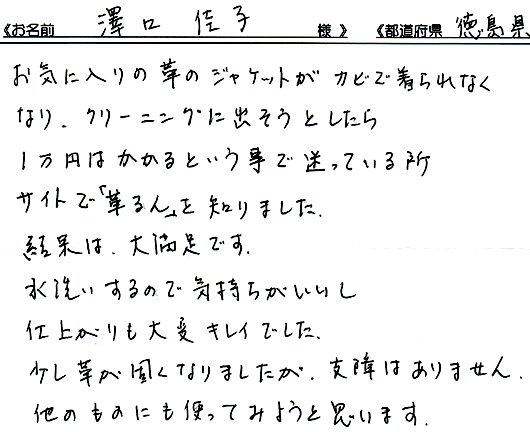 《お名前 澤口 佳子 様 》 《都道府県 徳島県
お気に入りの革のジャケットが カビで着られなく
なり、クリーニングに出そうとしたら
1万円はかかるという事で迷っている所
サイトで「革るん」を知りました。
結果は、大満足です。
水洗いするので気持ちがいいし
仕上がりも大変キレイでした。
少し革が固くなりましたが、支障はありません。
他のものにも使ってみようと思います。